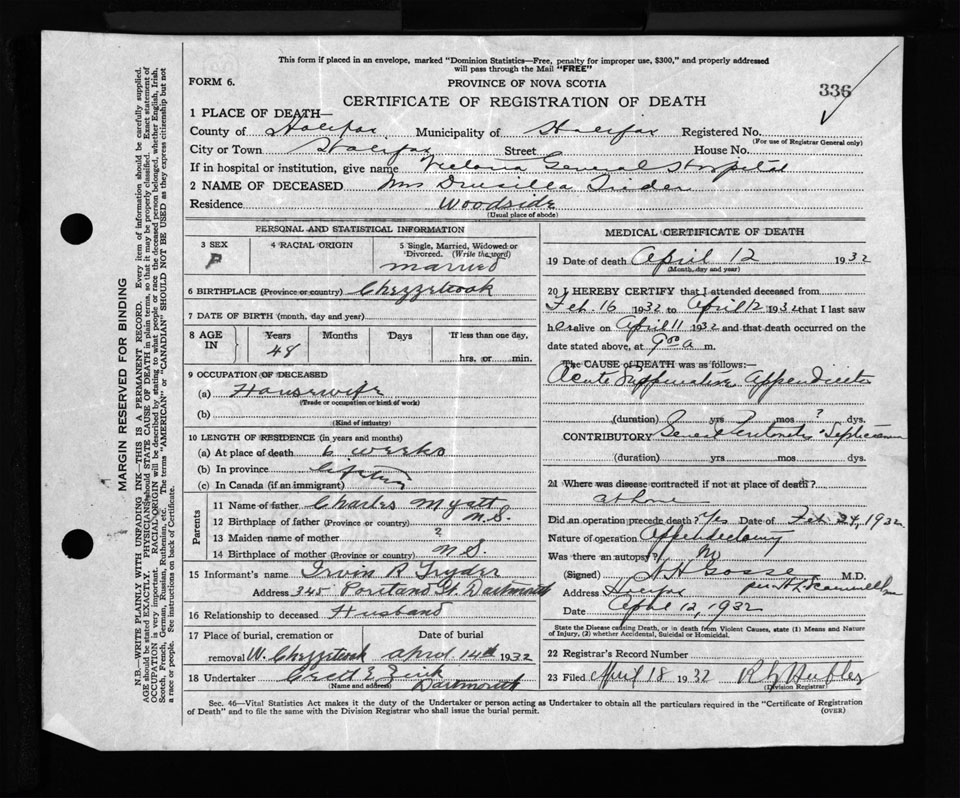 This form if placed in an envelope, marked "Dominion Statistics—Free, penalty for improper use, $300," and properly addressed
will pass through the Mail "FREE"
FORM 6.
PROVINCE OF NOVA SCOTIA
336
CERTIFICATE OF REGISTRATION OF DEATH
1 PLACE OF DEATH—
County of Halifax Municipality of Halifax Registered No.
(For use of Registrar General only)
City or Town Halifax Street House No.
If in hospital or institution, give name Victoria General Hospital
2 NAME OF DECEASED Mrs Drusilla
Residence Woodside
(Usual place of abode)
PERSONAL AND STATISTICAL INFORMATION
3 SEX
F
4 RACIAL ORIGIN
5 Single, Married, Widowed or
Divorced. (Write the word)
married
6 BIRTHPLACE (Province or country) Chezzetcook
7 DATE OF BIRTH (month, day and year)
8 AGE IN
Years Months Days If less than one day,
48
hrs. or min.
9 OCCUPATION OF DECEASED
(a) Housewife
(Trade or occupation or kind of work)
(b)
(Kind of industry)
10 LENGTH OF RESIDENCE (in years and months)
(a) At place of death 6 weeks
(b) In province lifetime
(c) In Canada (if an immigrant)
Parents
11 Name of father Charles Myatt
12 Birthplace of father (Province or country) N.S.
13 Maiden name of mother ?
14 Birthplace of mother (Province or country) N.S.
15 Informant's name Irvin R Tryder
Address 345 Portland St. Dartmouth
16 Relationship to deceased Husband
17 Place of burial, cremation or removal Date of burial
W. Chezzetcook April 14th 1932
18 Undertaker Cecil E Zink
(Name and address) Dartmouth
MEDICAL CERTIFICATE OF DEATH
19 Date of death April 12 1932
(Month, day and year)
20 I HEREBY CERTIFY that I attended deceased from
Feb. 16 1932 to April 12 1932 that I last saw
her alive on April 11 1932 and that death occurred on the
date stated above, at a m.
The CAUSE of DEATH was as follows:—
Acute Suppurative Appendicitis
(duration) yrs ? mos ? dys.
CONTRIBUTORY Peritonitis Septicaemia
(duration) yrs mos dys.
21 Where was disease contracted if not at place of death?
at home
Did an operation precede death? Yes Date of Feb 24, 1932
Nature of operation Appendectomy
Was there an autopsy? No
(Signed) N H Gosse M.D.
Address Halifax per
Date April 12, 1932
State the Disease causing Death, or in death from Violent Causes, state (1) Means and Nature
of Injury, (2) whether Accidental, Suicidal or Homicidal.
22 Registrar's Record Number
23 Filed April 18 1932
(Division Registrar)
Sec. 46—Vital Statistics Act makes it the duty of the Undertaker or person acting as Undertaker to obtain all the particulars required in the "Certificate of Registration
of Death" and to file the same with the Division Registrar who shall issue the burial permit.
(OVER)
MARGIN RESERVED FOR BINDING
N.B.—WRITE PLAINLY WITH UNFADING INK—THIS IS A PERMANENT RECORD. Every item of information should be carefully supplied.
AGE should be stated EXACTLY. PHYSICIANS should STATE CAUSE OF DEATH in plain terms, so that it may be properly classified. Exact statement of
OCCUPATION is very important. RACIAL ORIGIN will be described by stating to what people or race the deceased person belonged, whether English, Irish,
Scotch, French, German, Russian, Ruthenian, etc. The terms "AMERICAN" or "CANADIAN" SHOULD NOT BE USED as they express citizenship but not
a race or people. See instructions on back of Certificate.